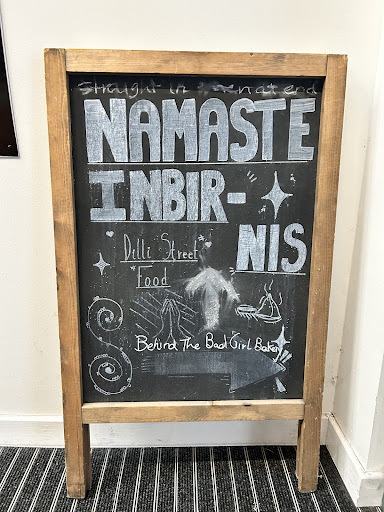 Straight in at end
NAMASTE
INBIR-
NIS
Dilli Street
Food
Behind The Bad Girl Bakery